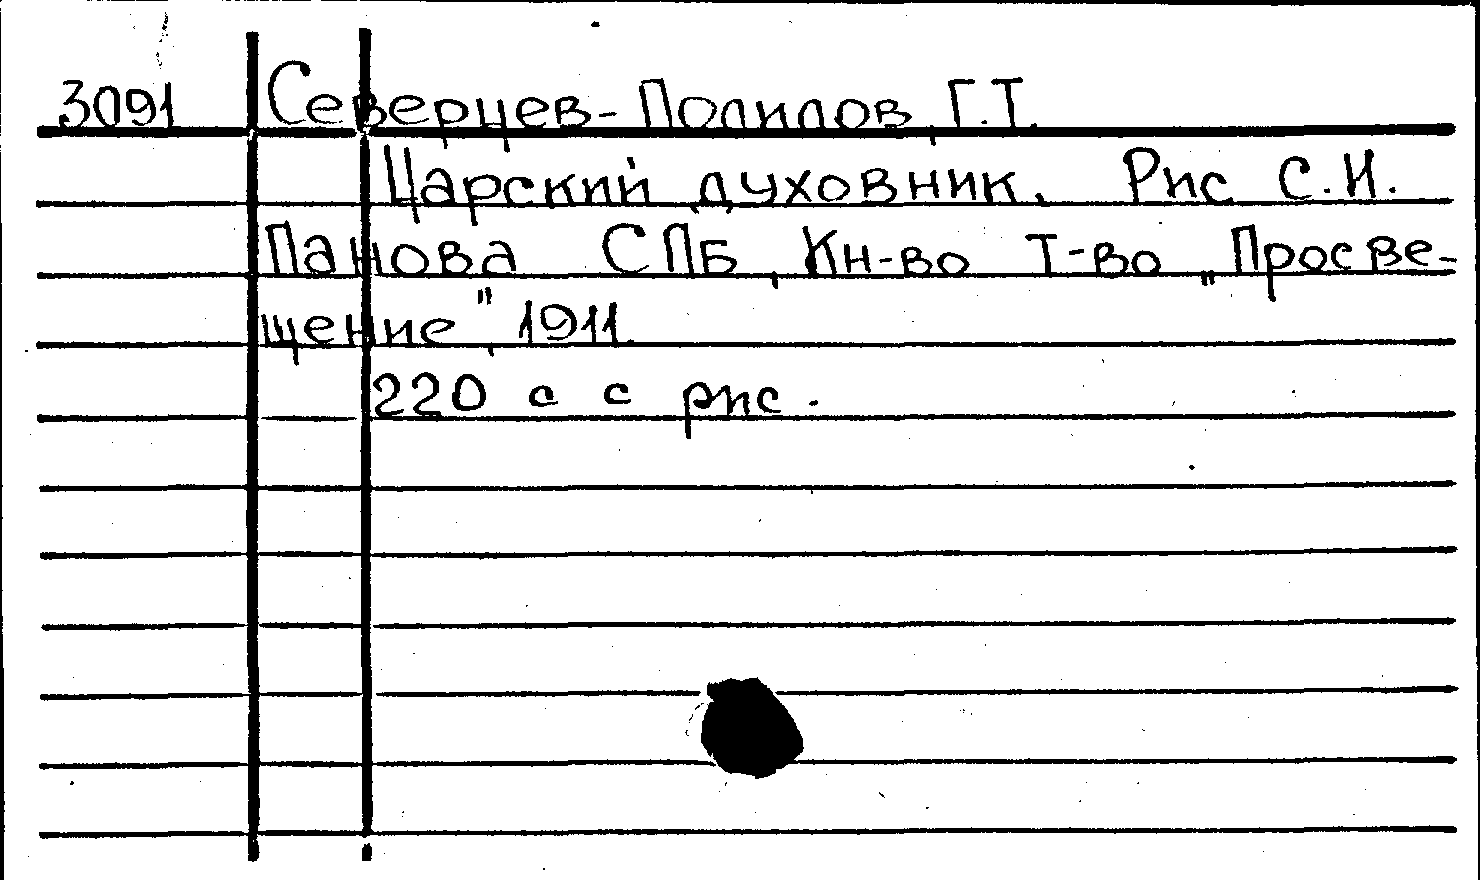 3091 Северцев-Полилов, Г.Т.
Царский духовник. Рис С.И.
Панова СПБ, Кн-во Т-во „Просве-
щение", 1911.
220 с с рис.